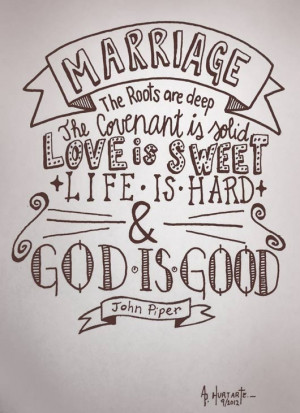 MARRIAGE
The Roots are deep
The Covenant is solid
LOVE is SWEET
LIFE · IS · HARD
&
GOD · IS · GOOD
John Piper
A. HURTARTE
9/2012